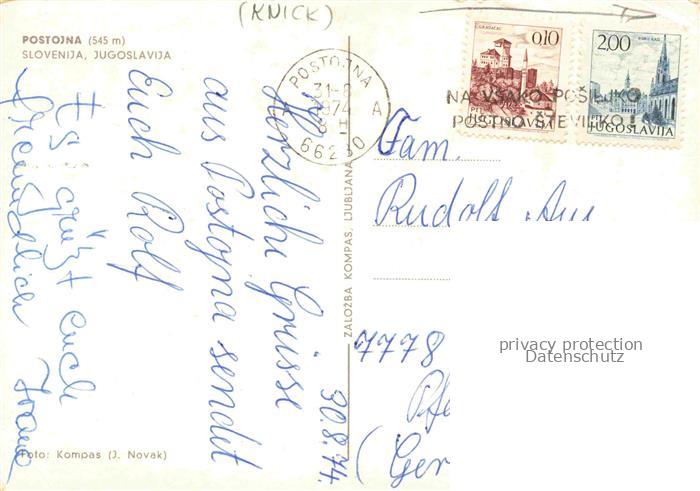 (KNICK)
POSTOJNA (545 m)
SLOVENIJA, JUGOSLAVIJA
POSTOJNA
31-8
1974
A
66230
GRADAČAC
0,10
JUGOSLAVIJA
2,00
NOVI SAD
JUGOSLAVIJA
NA VSAKO POŠILJKO
POŠTNO ŠTEVILKO!
30.8.74.
Herzliche Grüsse
aus Postojna sendet
Euch Rolf
Es grüßt euch
ZALOŽBA KOMPAS, LJUBLJANA
Fam.
Rudolf
7778
Pfe
(Ger
privacy protection
Datenschutz
Foto: Kompas (J. Novak)